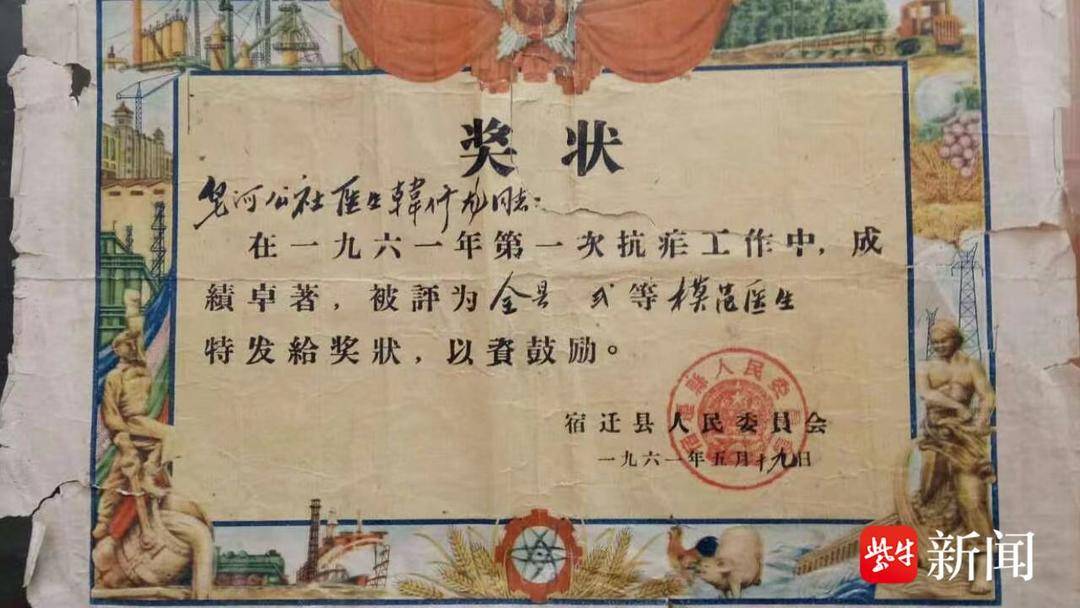 奖状
皂河公社医生韓竹九同志：
在一九六一年第一次抗疟工作中，成
績卓著，被評为全县 弍等模范医生
特发給奖狀，以資鼓励。
宿迁县人民委員会
一九六一年五月十九日
宿遷縣人民委員會
紫牛新闻